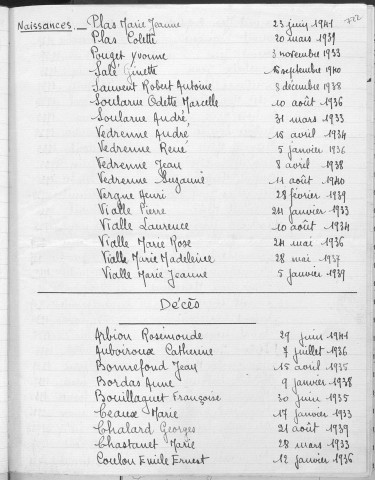 Naissances._ Plas Marie Jeanne 23 juin 1941
Plas Colette 20 mars 1939
Pouget Yvonne 3 novembre 1933
Salé Ginette septembre 1940
Sauvent Robert Antoine 8 décembre 1938
Soularue Odette Marcelle 10 août 1936
Soularue André 31 mars 1933
Vedrenne André 18 avril 1934
Vedrenne René 5 janvier 1936
Vedrenne Jean 8 avril 1938
Vedrenne Suzanne 11 août 1940
Vergne Henri 28 février 1939
Vialle Pierre 24 janvier 1933
Vialle Laurence 10 août 1934
Vialle Marie Rose 24 mai 1936
Vialle Marie Madeleine 28 mai 1937
Vialle Marie Jeanne 5 janvier 1939
Décès
Arbion Rosemonde 29 juin 1941
Auboiroux Catherine 7 juillet 1936
Bonnefond Jean 15 avril 1935
Bordas Anne 9 janvier 1938
Bouillaguet Françoise 30 juin 1935
Ceaux Marie 17 janvier 1933
Chalard Georges 21 août 1939
Chastanet Marie 28 mars 1933
Coulou Emile Ernest 12 janvier 1936